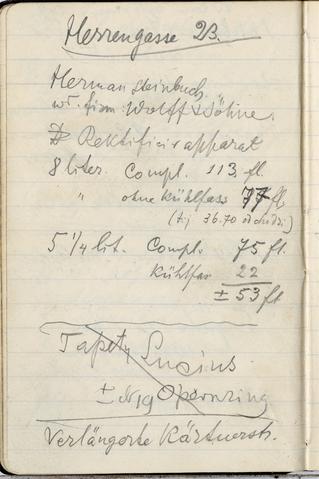 Herrengasse 2B.
Herman Steinbuch
w. firm: Wolff & Söhne.
Rektificirapparat
8 liter. Compl. 113 fl.
" ohne Kühlfass 77 fl.
(t.j 36.70 odchodzi)
5 1/4 lit. Compl. 75 fl.
Kühlfas 22
± 53 fl
Tapety Lucius
± Opernring
Verlängerte Kärtnerstr.